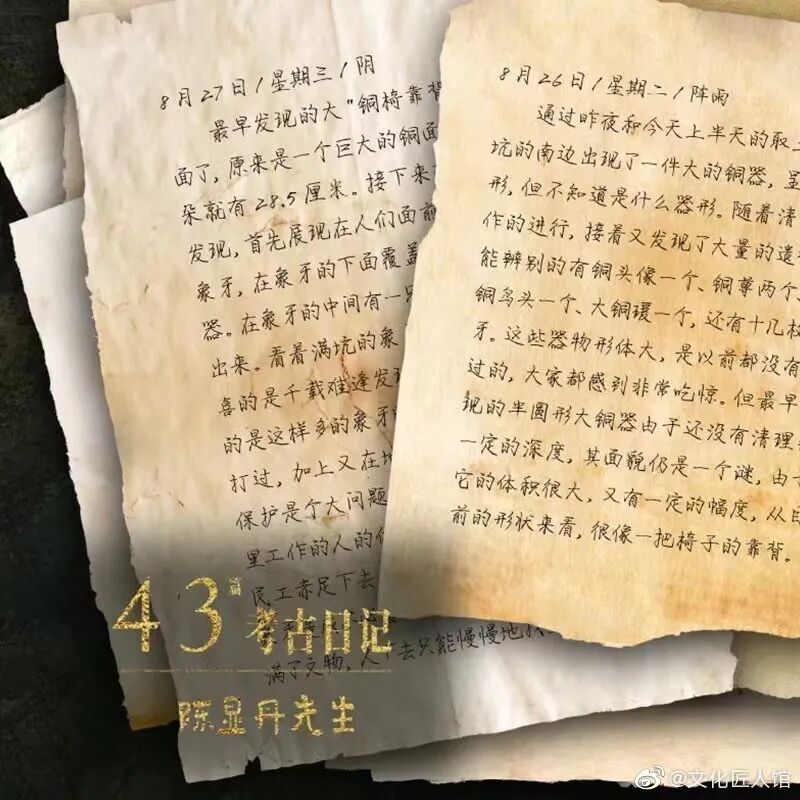 8月27日/星期三/阴
最早发现的大"铜椅靠背
面了,原来是一个巨大的铜面
朵就有28.5厘米。接下来
发现,首先展现在人们面前
象牙,在象牙的下面覆盖
器。在象牙的中间有一只
出来。看着满坑的象
喜的是千载难逢发现
的是这样多的象牙
打过,加上又在地
保护是个大问题
里工作的人的
民工赤足下去
满了文物,人下去只能慢慢地找
8月26日/星期二/阵雨
通过昨夜和今天上半天的取土
坑的南边出现了一件大的铜器,显
形,但不知道是什么器形。随着清
作的进行,接着又发现了大量的遗
能辨别的有铜头像一个、铜尊两个、
铜鸟头一个、大铜瑗一个,还有十几枚
牙。这些器物形体大,是以前都没有
过的,大家都感到非常吃惊。但最早
现的半圆形大铜器由于还没有清理
一定的深度,其面貌仍是一个谜,由于
它的体积很大,又有一定的幅度,从目
前的形状来看,很像一把椅子的靠背。
43篇考古日记
陈显丹先生
@文化匠人馆